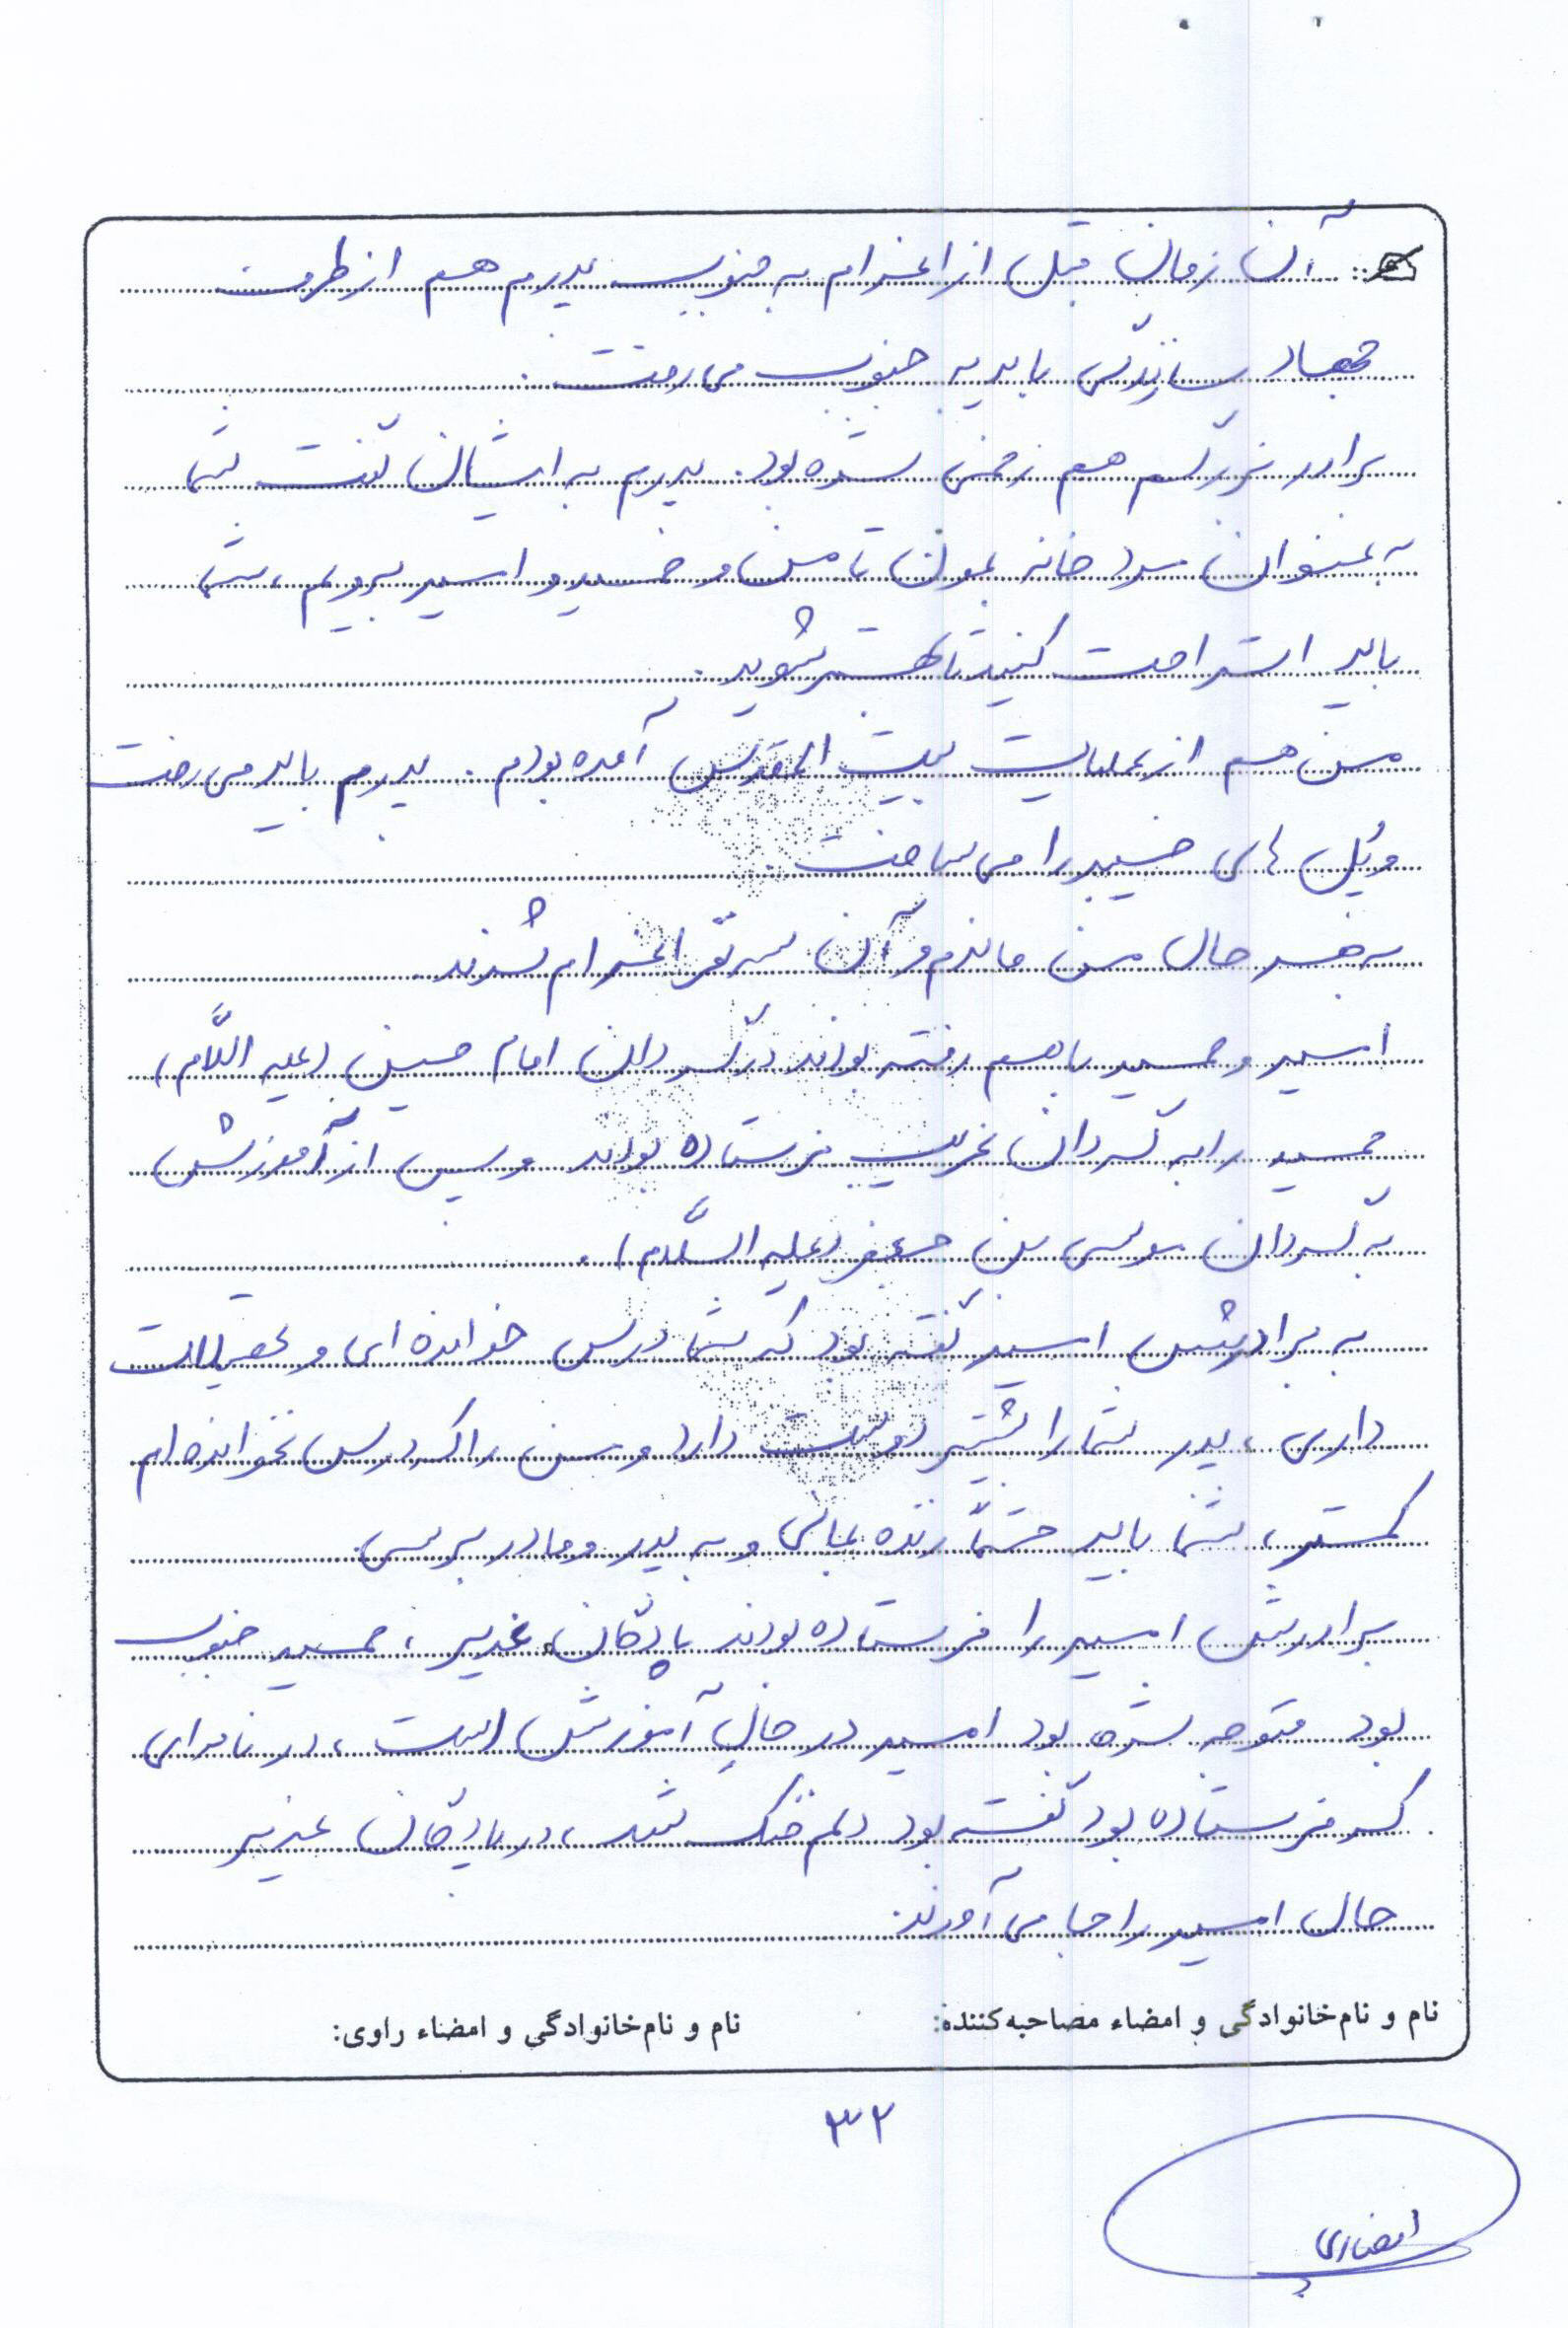 آن زمان قبل از اعزام به جنوب پدرم هم از طرف
جهاد سازندگی باید به جنوب می رفت.
برادر بزرگم هم زخمی شده بود. پدرم به ایشان گفت شما
به عنوان مرد خانه بمون تا من و حمید و امیر برویم، شما
باید استراحت کنید تا بهتر شوید.
من هم از عملیات بیت المقدس آمده بودم. پدرم باید می رفت
و پل های خیبر را می ساخت.
به هر حال من ماندم و آن سه نفر اعزام شدند.
امیر و حمید با هم رفته بودند در گردان امام حسین (علیه السّلام)
حمید را به گردان تخریب فرستاده بودند و سپس از آموزش
به گردان موسی بن جعفر (علیه السّلام).
به برادرش امیر گفته بود که شما درس خوانده ای و تحصیلات
داری، پدر شما را بیشتر دوست دارد و من را که درس نخوانده ام
کمتر، شما باید حتماً زنده بمانی و به پدر و مادر برسی.
برادرش امیر را فرستاده بودند پادگان غدیر، حمید جنوب
بود متوجه شده بود امیر در حال آموزش است، در نامه ای
که فرستاده بود گفته بود دلم خنک شد، در پادگان غدیر
حال امیر را جا می آورند.
نام و نام خانوادگی و امضاء مصاحبه کننده:
نام و نام خانوادگی و امضاء راوی:
۳۲
انصاری